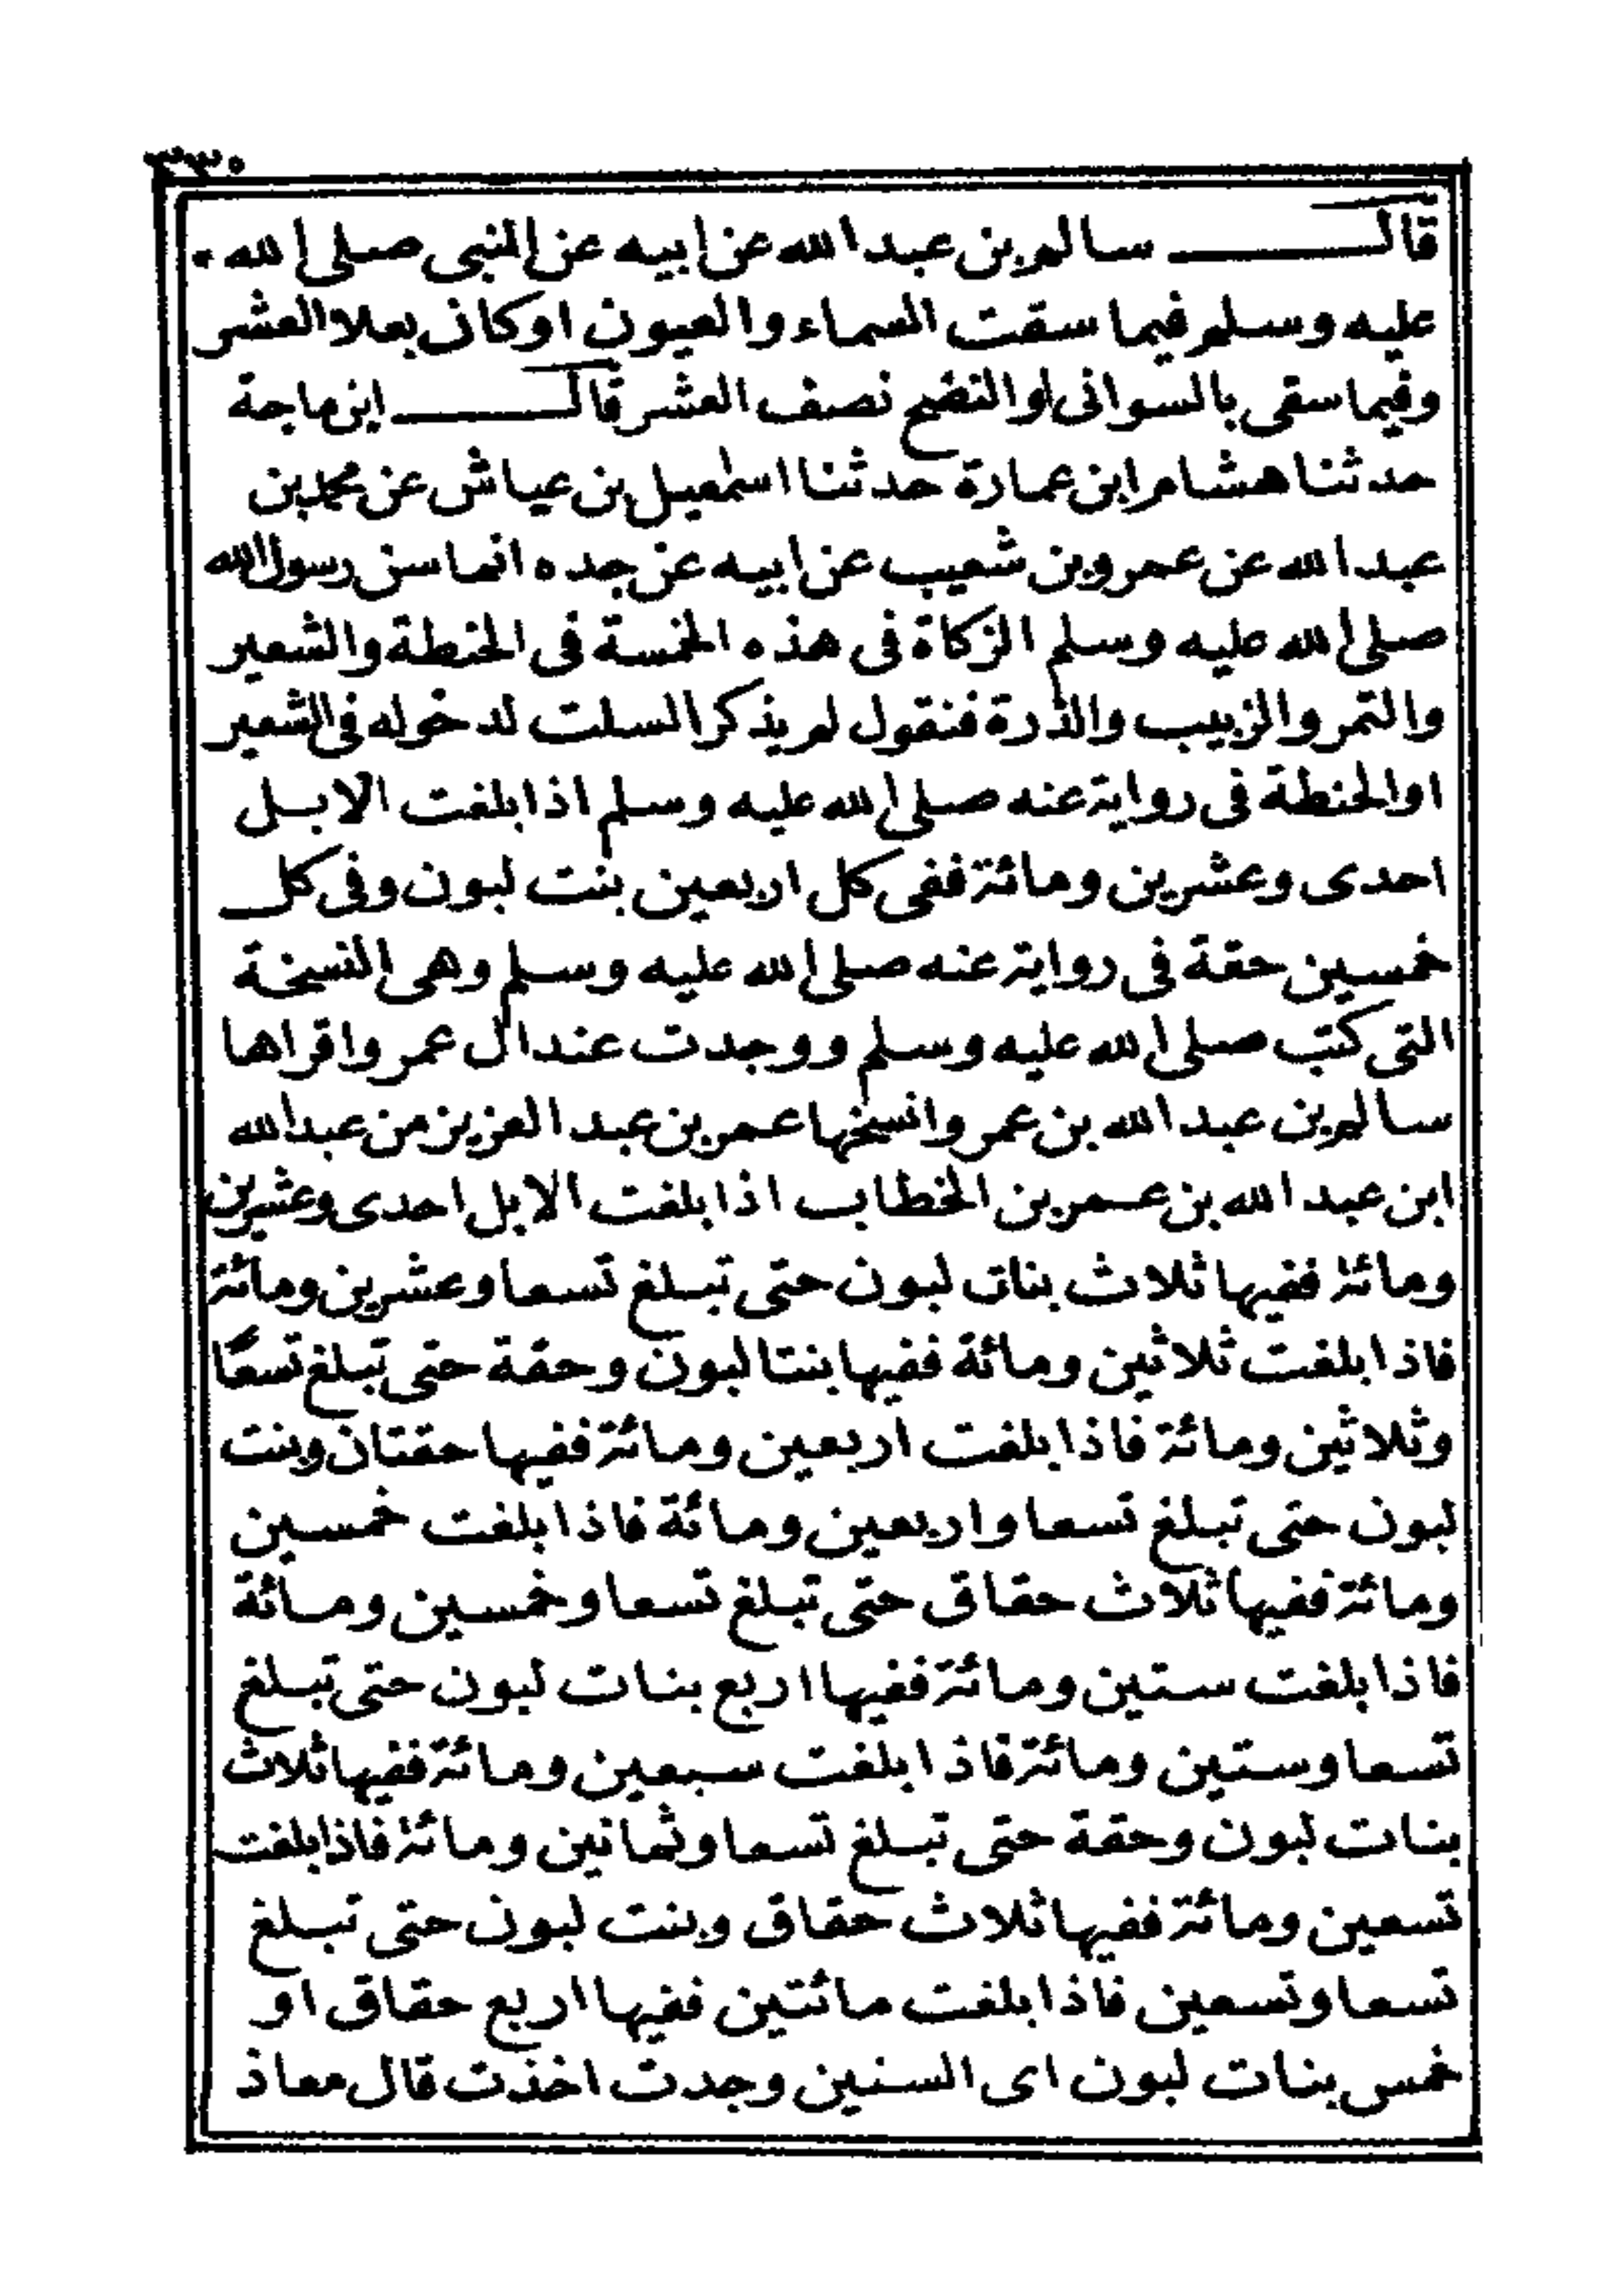 ٣٣٠
قال سالم بن عبد الله عن ابيه عن النبى صلى الله
عليه وسلم فيما سقت السماء والعيون او كان بعلا العشر
وفيما سقى بالسوانى او النضح نصف العشر قال ابن ماجة
حدثنا هشام ابن عمارة حدثنا اسمعيل بن عياش عن محمد بن
عبد الله عن عمرو بن شعيب عن ابيه عن جده انما سن رسول الله
صلى الله عليه وسلم الزكاة فى هذه الخمسة فى الحنطة والشعير
والتمر والزبيب والذرة فنقول لم يذكر السلت لدخوله فى الشعير
او الحنطة فى رواية عنه صلى الله عليه وسلم اذا بلغت الابل
احدى وعشرين ومائة ففى كل اربعين بنت لبون وفى كل
خمسين حقة فى رواية عنه صلى الله عليه وسلم وهى النسخة
التى كتب صلى الله عليه وسلم ووجدت عند ال عمر واقراها
سالم بن عبد الله بن عمر وانسخها عمر بن عبد العزيز من عبد الله
ابن عبد الله بن عمر بن الخطاب اذا بلغت الابل احدى وعشرين
ومائة ففيها ثلاث بنات لبون حتى تبلغ تسعا وعشرين ومائة
فاذا بلغت ثلاثين ومائة ففيها بنتا لبون وحقة حتى تبلغ تسعًا
وثلاثين ومائة فاذا بلغت اربعين ومائة ففيها حقتان وبنت
لبون حتى تبلغ تسعا واربعين ومائة فاذا بلغت خمسين
ومائة ففيها ثلاث حقاق حتى تبلغ تسعا وخمسين ومائة
فاذا بلغت ستين ومائة ففيها اربع بنات لبون حتى تبلغ
تسعا وستين ومائة فاذا بلغت سبعين ومائة ففيها ثلاث
بنات لبون وحقة حتى تبلغ تسعا وثمانين ومائة فاذا بلغت
تسعين ومائة ففيها ثلاث حقاق وبنت لبون حتى تبلغ
تسعا وتسعين فاذا بلغت مائتين ففيها اربع حقاق او
خمس بنات لبون اى السنين وجدت اخذت قال معاذ